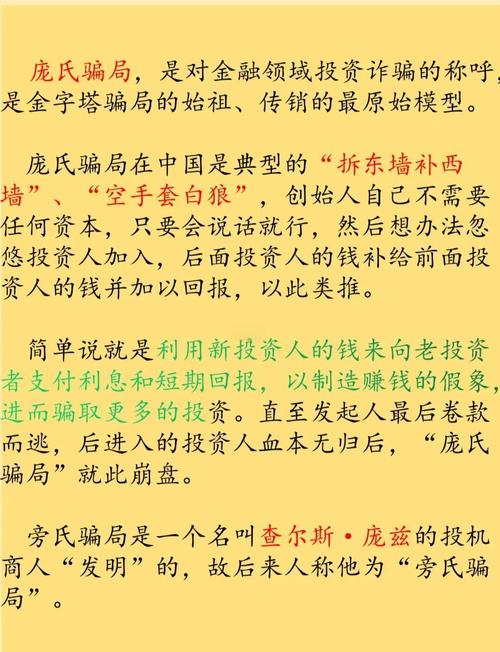 庞氏骗局，是对金融领域投资诈骗的称呼，
是金字塔骗局的始祖、传销的最原始模型。
庞氏骗局在中国是典型的“拆东墙补西
墙”、“空手套白狼”，创始人自己不需要
任何资本，只要会说话就行，然后想办法忽
悠投资人加入，后面投资人的钱补给前面投
资人的钱并加以回报，以此类推。
简单说就是利用新投资人的钱来向老投资
者支付利息和短期回报，以制造赚钱的假象，
进而骗取更多的投资。直至发起人最后卷款
而逃，后进入的投资人血本无归后，“庞氏
骗局”就此崩盘。
旁氏骗局是一个名叫查尔斯·庞兹的投机
商人“发明”的，故后来人称他为“旁氏骗
局”。